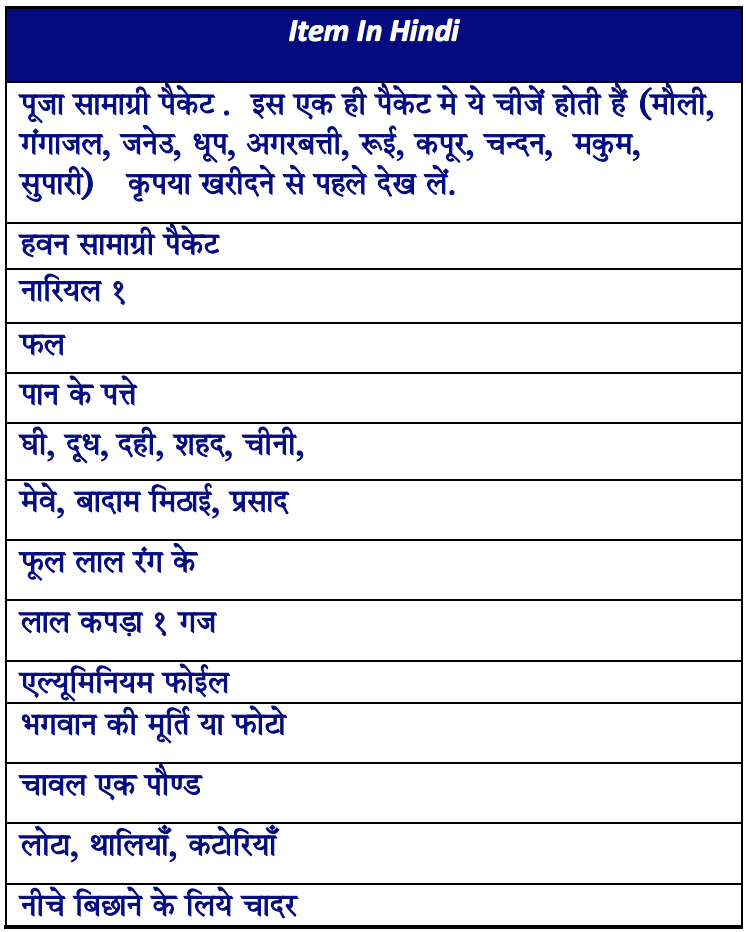 Item In Hindi
पूजा सामाग्री पैकेट .  इस एक ही पैकेट मे ये चीजें होती हैं (मौली,
गंगाजल, जनेउ, धूप, अगरबत्ती, रूई, कपूर, चन्दन,  मकुम,
सुपारी)   कृपया खरीदने से पहले देख लें.
हवन सामाग्री पैकेट
नारियल १
फल
पान के पत्ते
घी, दूध, दही, शहद, चीनी,
मेवे, बादाम मिठाई, प्रसाद
फूल लाल रंग के
लाल कपड़ा १ गज
एल्यूमिनियम फोईल
भगवान की मूर्ति या फोटो
चावल एक पौण्ड
लोटा, थालियाँ, कटोरियाँ
नीचे बिछाने के लिये चादर